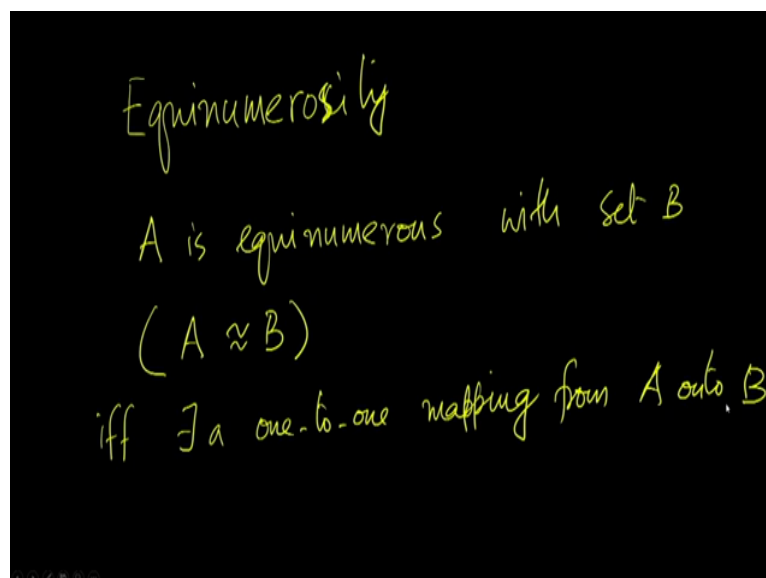 Equinumerosity
A is equinumerous with set B
(A ≈ B)
iff ∃ a one-to-one mapping from A onto B